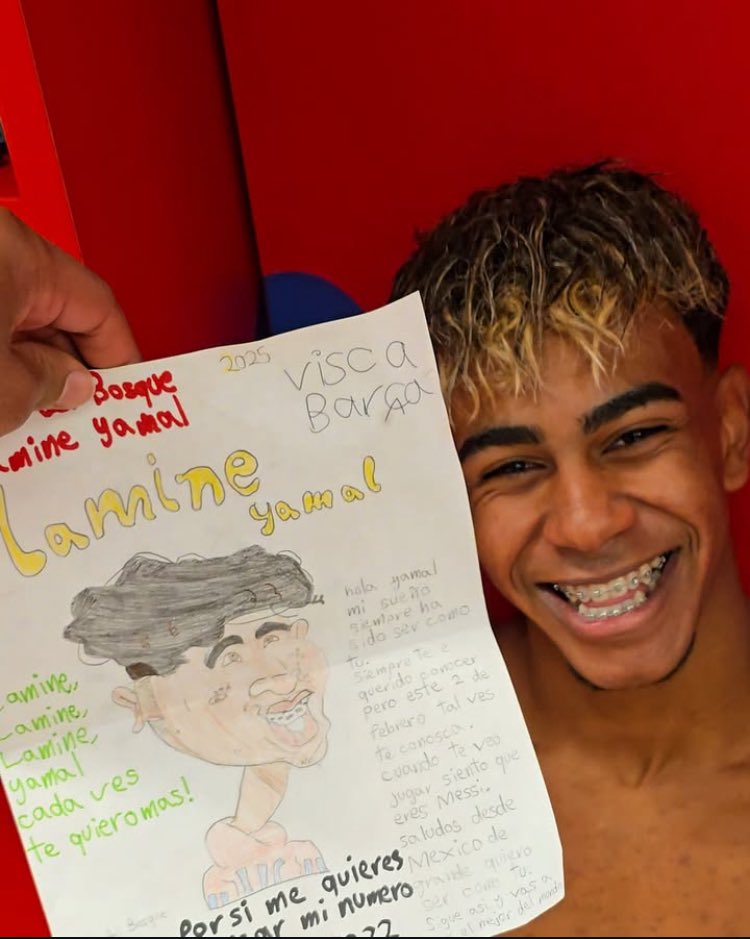 Bosque
mine yamal
2025
visca
Barça
Lamine
yamal
Lamine,
Lamine,
Lamine,
yamal
cada ves
te quieromas!
hola yamal
mi sueño
siempre ha
sido ser como
tu.
siempre te e
querido conocer
pero este 2 de
febrero tal ves
te conosca.
cuando te veo
jugar siento que
eres Messi.
saludos desde
Mexico de
grande quiero
ser como tu.
Sigue asi y vas a
el mejor del mundo
Bosque
Porsi me quieres
mar mi numero